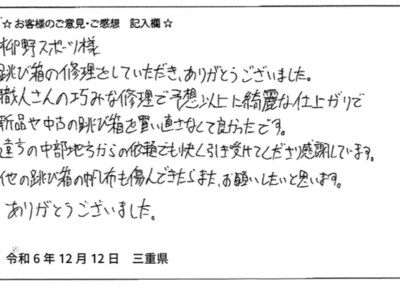 ☆お客様のご意見・ご感想 記入欄☆
柳野スポーツ様
跳び箱の修理をしていただき、ありがとうございました。
職人さんの巧みな修理で予想以上に綺麗な仕上がりで
新品や中古の跳び箱を買い直さなくて良かったです。
遠方の中部地方からの依頼でも快く引き受けてくださり感謝しています。
他の跳び箱の帆布も傷んできたらまた、お願いしたいと思います。
ありがとうございました。
令和6年12月12日 三重県